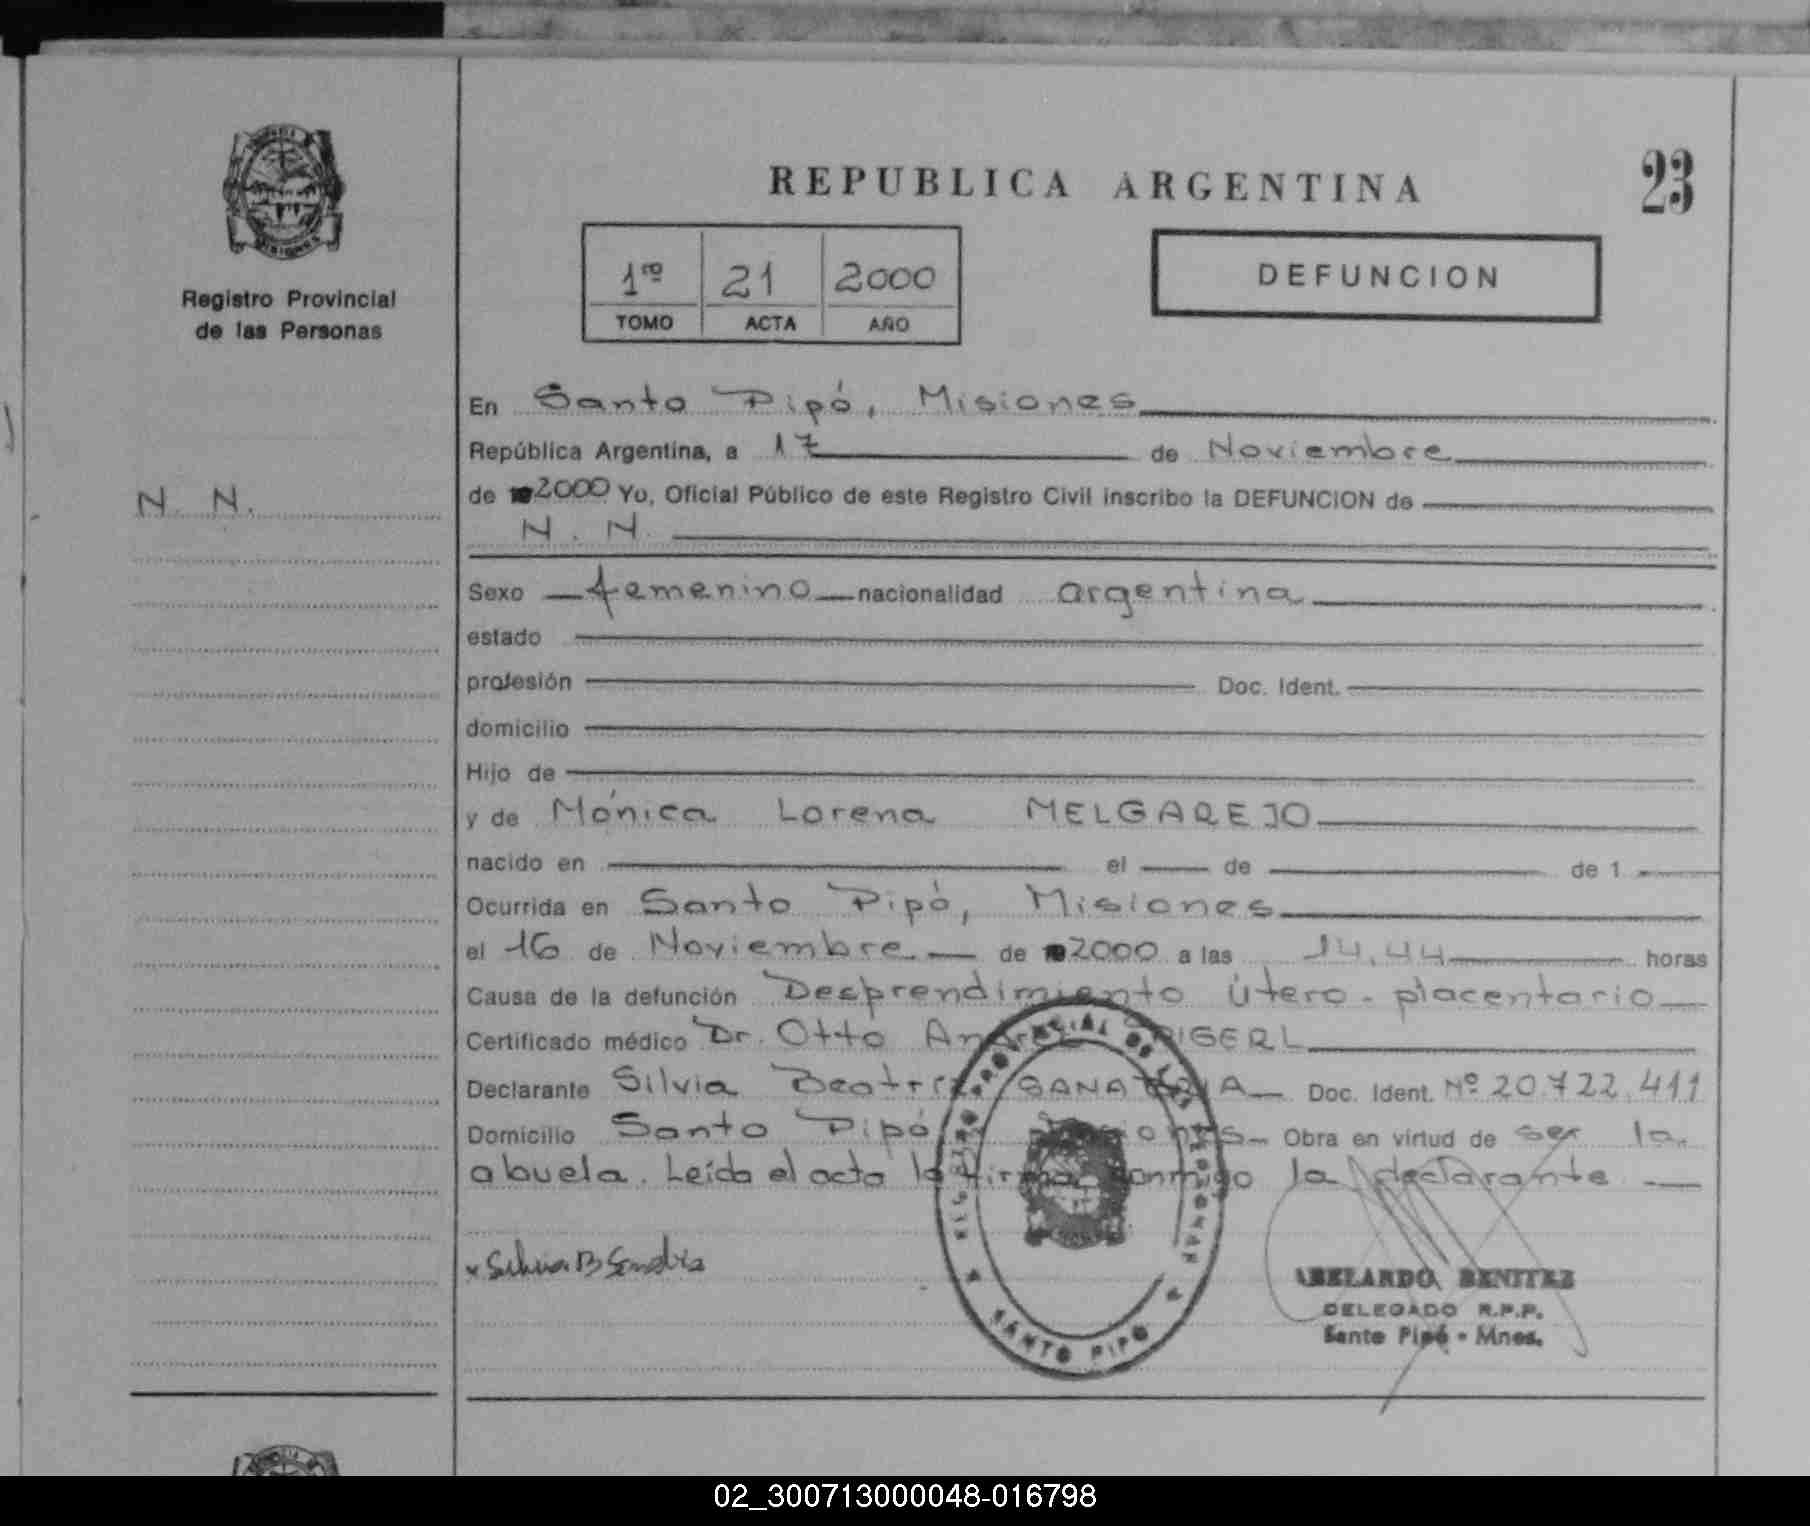 REPUBLICA ARGENTINA
23
1ro 21 2000
TOMO ACTA AÑO
DEFUNCION
Registro Provincial
de las Personas
MISIONES
N. N.
En Santo Pipó, Misiones
República Argentina, a 17 de Noviembre
de 2000 Yo, Oficial Público de este Registro Civil inscribo la DEFUNCION de
N. N.
Sexo femenino nacionalidad argentina
estado
profesión Doc. Ident.
domicilio
Hijo de
y de Mónica Lorena MELGAREJO
nacido en el de de 1
Ocurrida en Santo Pipó, Misiones
el 16 de Noviembre de 2000 a las 14,44 horas
Causa de la defunción Desprendimiento útero-placentario
Certificado médico Dr. Otto
Declarante Silvia Beatriz SANATRIA Doc. Ident. Nº 20.722.411
Domicilio Santo Pipó, Misiones Obra en virtud de ser la
abuela. Leída el acta la firma conmigo la declarante
Silvia B
REGISTRO PROVINCIAL DE LAS PERSONAS
SANTO PIPÓ
ABELARDO BENITEZ
DELEGADO R.P.P.
Santo Pipó - Mnes.
02_300713000048-016798